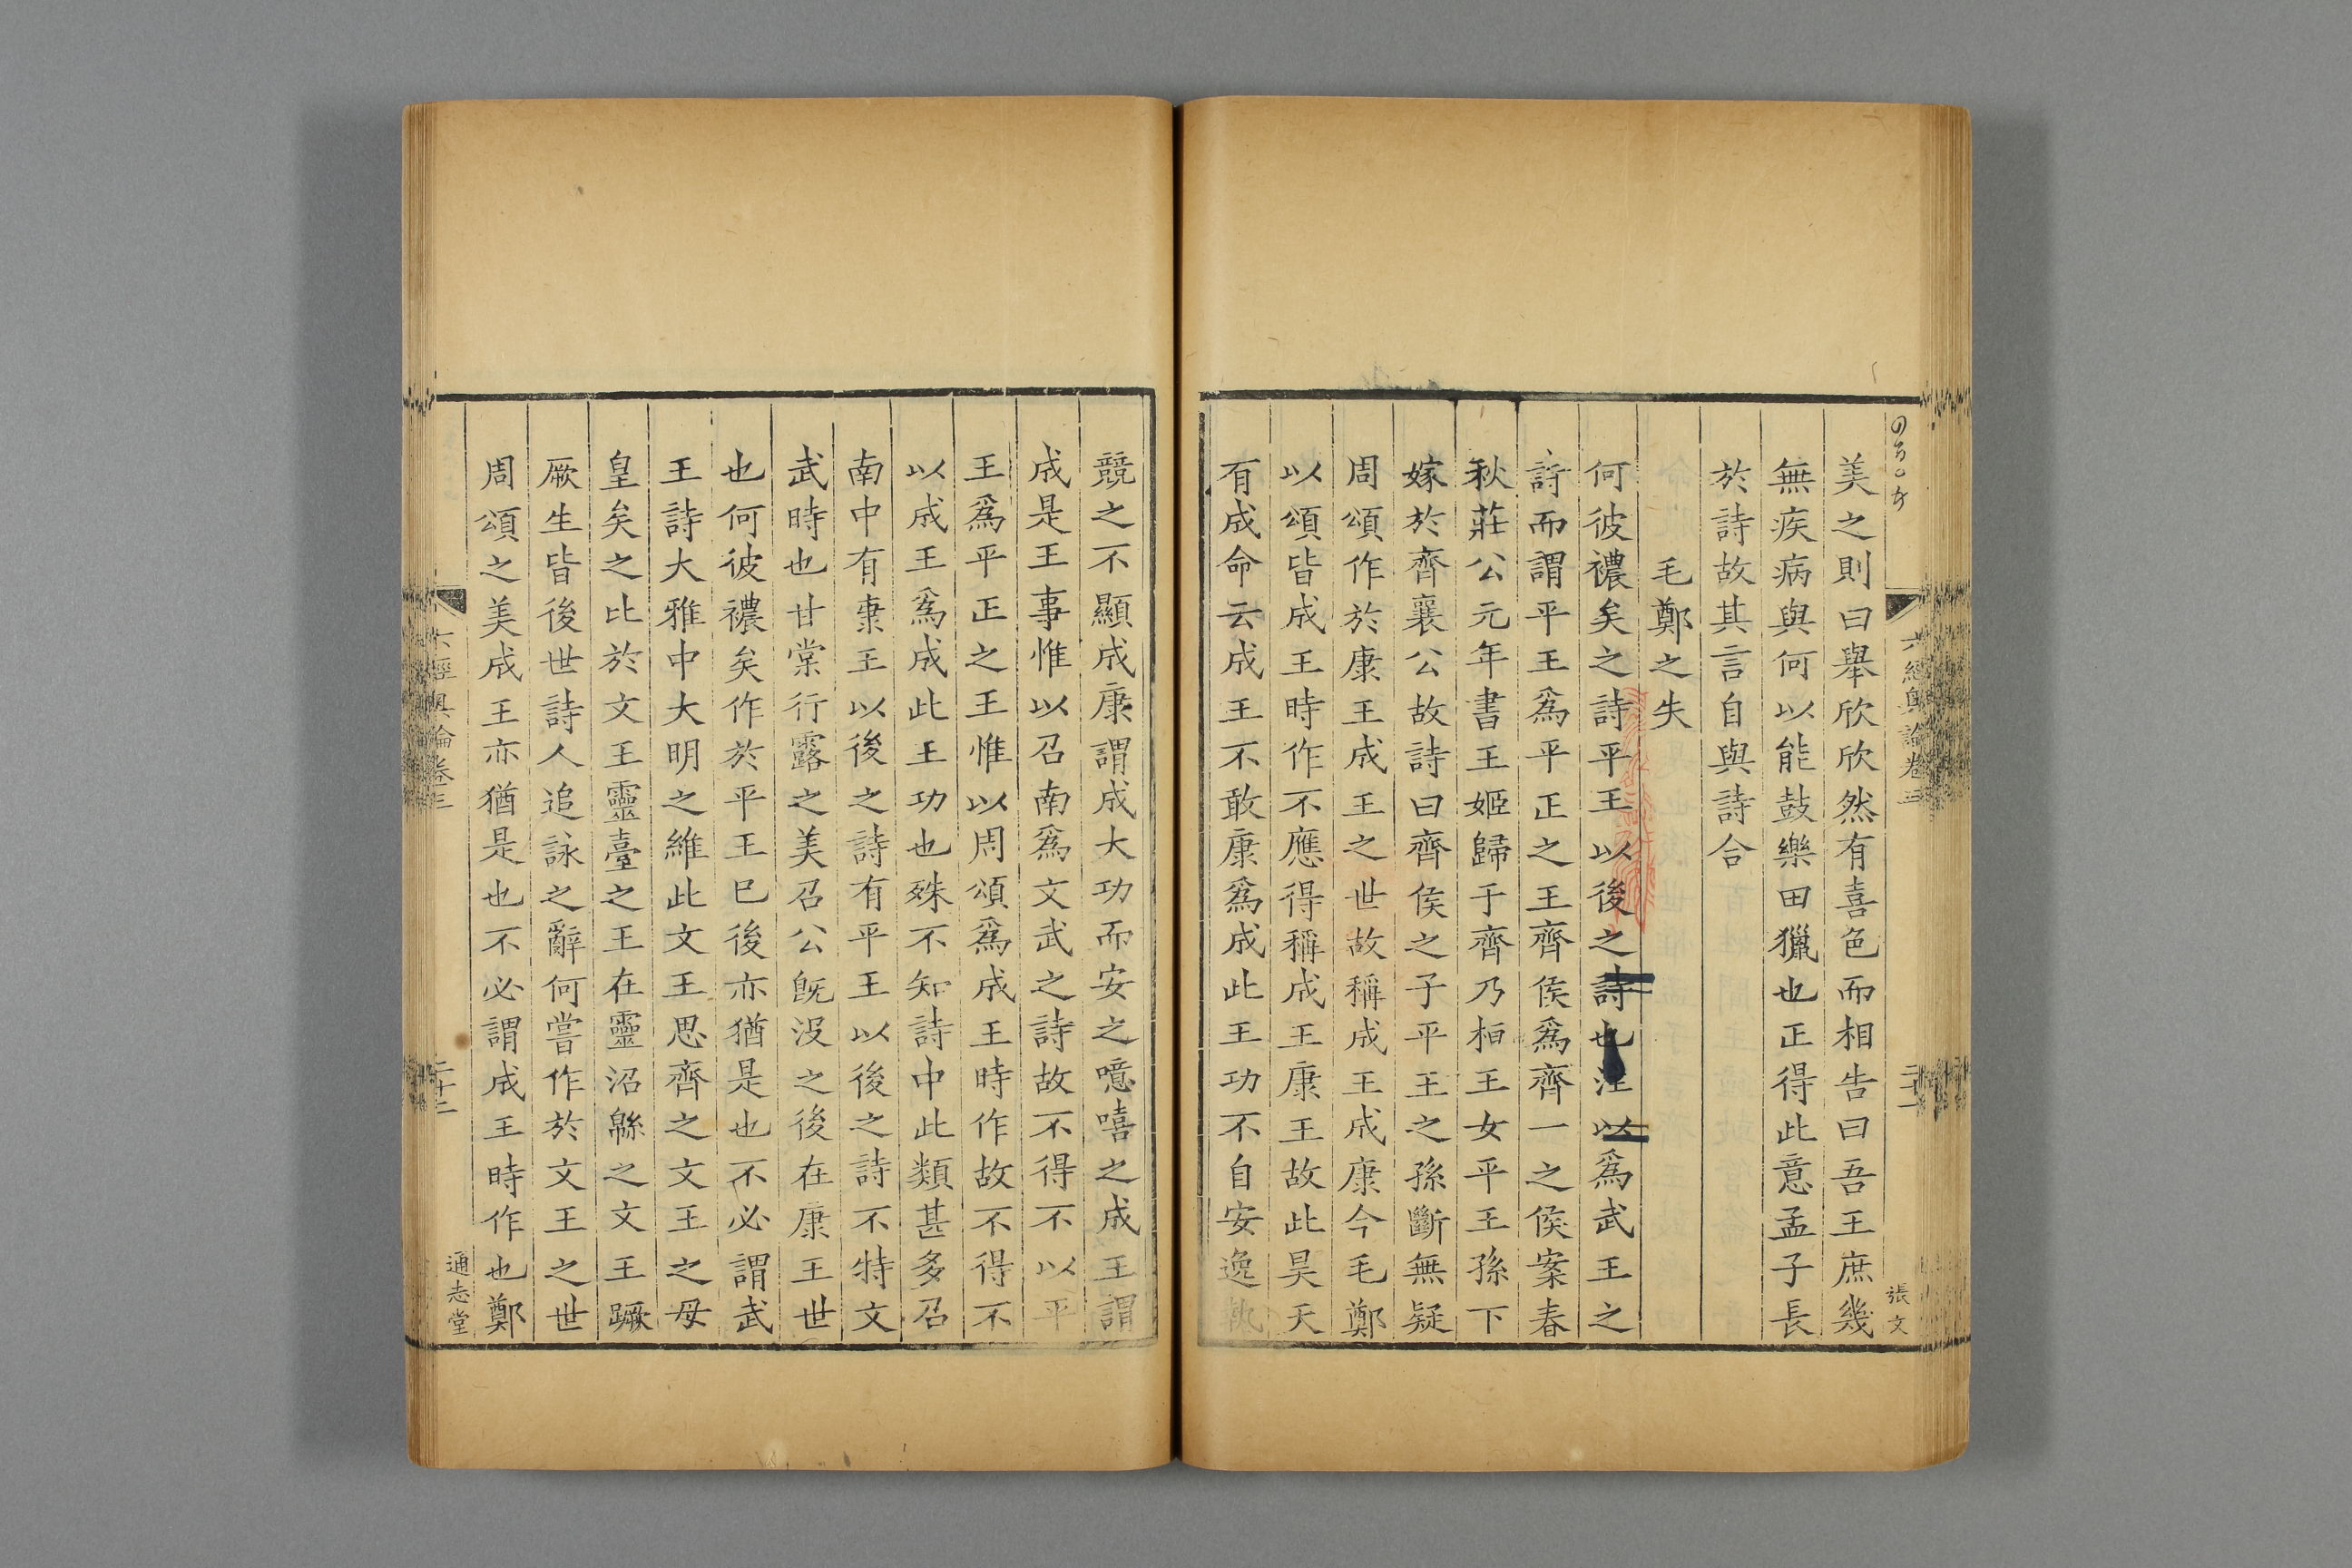 美之則曰舉欣欣然有喜色而相告曰吾王庶幾
無疾病與何以能鼓樂田獵也正得此意孟子長
於詩故其言自與詩合
毛鄭之失
何彼襛矣之詩平王以後之詩也注以爲武王之
詩而謂平王爲平正之王齊侯爲齊一之侯案春
秋莊公元年書王姬歸于齊乃桓王女平王孫下
嫁於齊襄公故詩曰齊侯之子平王之孫斷無疑
周頌作於康王成王之世故稱成王成康今毛鄭
以頌皆成王時作不應得稱成王康王故此昊天
有成命云成王不敢康爲成此王功不自安逸執
競之不顯成康謂成大功而安之噫嘻之成王謂
成是王事惟以召南爲文武之詩故不得不以平
王爲平正之王惟以周頌爲成王時作故不得不
以成王爲成此王功也殊不知詩中此類甚多召
南中有康王以後之詩有平王以後之詩不特文
武時也甘棠行露之美召公既没之後在康王世
也何彼襛矣作於平王已後亦猶是也不必謂武
王詩大雅中大明之維此文王思齊之文王之母
皇矣之比於文王靈臺之王在靈沼緜之文王蹶
厥生皆後世詩人追詠之辭何嘗作於文王之世
周頌之美成王亦猶是也不必謂成王時作也鄭
六經奧論卷三
二十一
張文
六經奧論卷三
二十二
通志堂